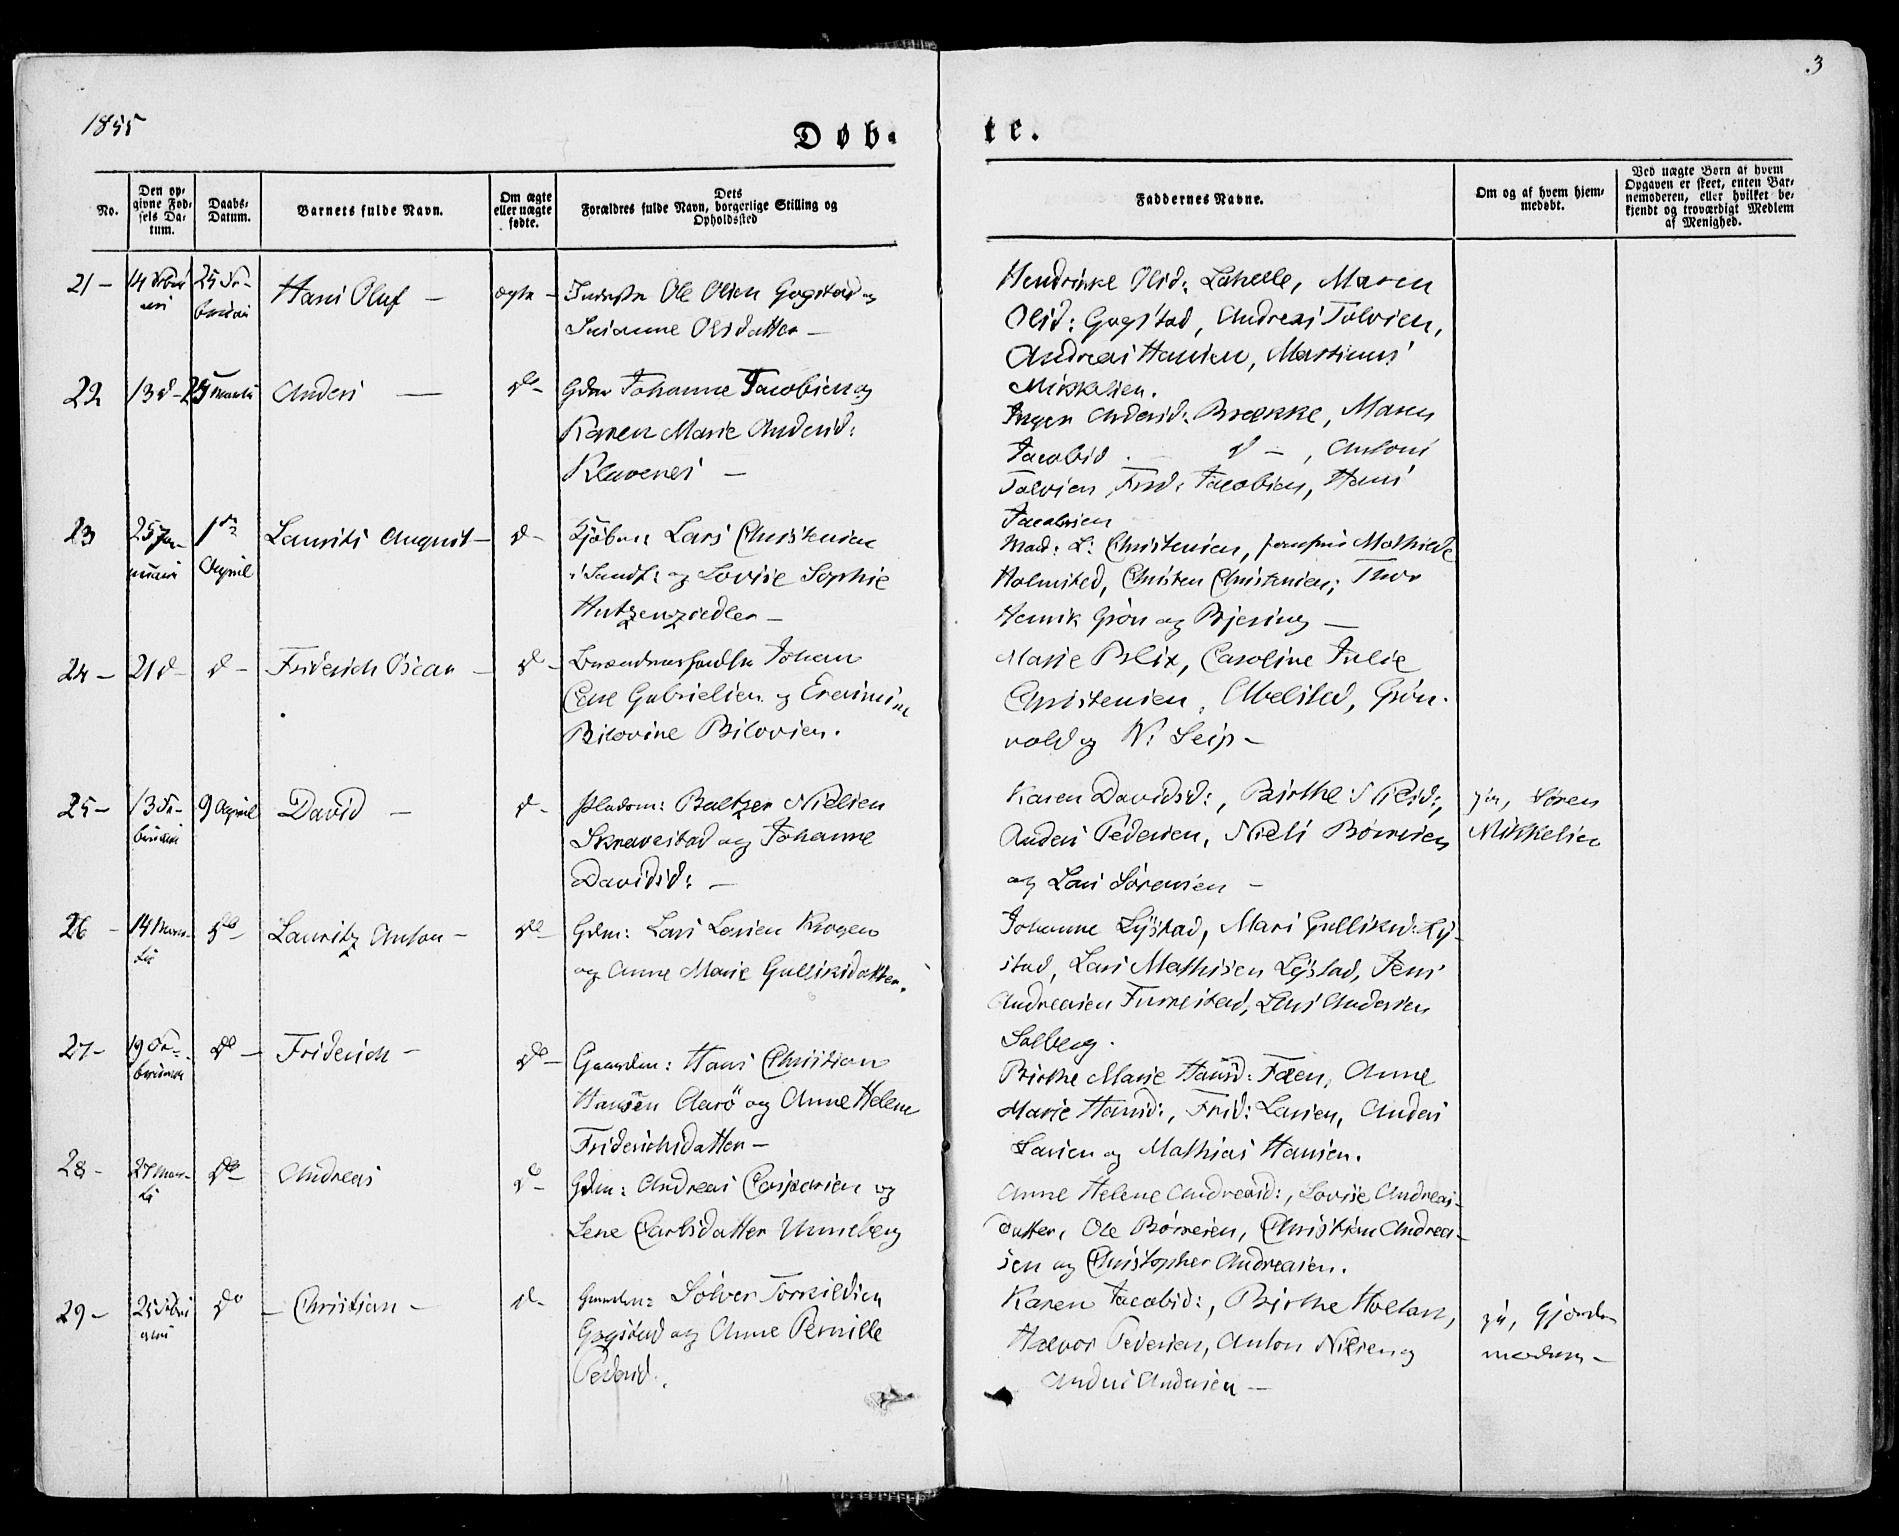 3
1855
Døb-
te.
No.
Den op-
givne Fød-
sels Da-
tum.
Daabs-
Datum.
Barnets fulde Navn.
Om ægte
eller uægte
fødte.
Dets
Forældres fulde Navn, borgerlige Stilling og
Opholdssted
Faddernes Navne.
Om og af hvem hjem-
medøbt.
Ved uægte Børn af hvem
Opgaven er skeet, enten Bar-
nemoderen, eller hvilket be-
kjendt og troværdigt Medlem
af Menighed.
21 - 14 Febru
ari
25 Fe-
bruari
Hans Oluf -
ægte -
Inderste Ole Olsen Gogstad og
Susanne Olsdatter -
Hendrikke Olsd: Lahelle, Maren
Olsd: Gogstad, Andreas Tolvsen,
Andreas Hansen, Martinus
Mikkelsen.
22 13 d - 25 Martii
Anders -
do -
Gdm Johanne Jacobsen og
Karen Marie Andersd:
Klavenes -
Inger Andersd: Brekke, Maren
Jacobsd. d - , Antoni
Tolvsen, Fred: Jacobsen, Hans
Jacobsen
23 25 Jan-
nuari
1ste
April
Laurits August -
d -
Kjøbm: Lars Christensen
i Sandf: og Lovise Sophie
Hutzenziedler -
Mad: L: Christensen, Josephine Mathilde
Holmsted, Christen Christensen, Thor
Henrik Grøn og Bjering -
24 - 21 d - d -
Friderich Oscar -
d -
Johan
Gabrielsen og
Bilovine Bilovsen.
Marie Blix, Caroline Julie
Christensen, Abelsted, Grøn-
vold og N: Seip -
25 - 13 Fe-
bruari
9 April
David -
d -
Pladsm: Baltzer Nielsen
Skravestad og Johanne
Davidsd: -
Karen Davidsd:, Birthe Nilsd:,
Anders Pedersen, Niels Børresen
og Lars Sørensen -
ja, Søren
Mikkelsen
26 - 14 Mar-
tii
do -
Lauritz Anton -
do -
Gdm: Lars Larsen Krogen
og Anne Marie Gulliksdatter.
Johanne Lystad, Mari Gulliksd: Ly-
stad, Lars Mathisen Lystad, Jens
Andreasen Furrestad, Lars Andersen
Solberg.
27 - 19 Fe-
bruari
do -
Friderich -
do -
Gaardm: Hans Christian
Hansen Aarö og Anne Helene
Friderichsdatter -
Birthe Marie Hansd: Fæen, Anne
Marie Hansd:, Frid: Larsen, Anders
Larsen og Mathias Hansen.
28 - 27 Mar-
tii
do -
Andreas
do -
Gdm: Andreas Caspersen og
Lene Carlsdatter Unneberg
Anne Helene Andreasd:, Lovise Andreas-
datter, Ole Børresen, Christian Andrea-
sen og Christopher Andreasen.
29 - 25 Febru
arii
do
- Christian -
d -
Gaardm: Solver Torkildsen
Gogstad og Anne Pernille
Pedersd.
Karen Jacobsd:, Birthe Holtan,
Halvor Pedersen, Anton Nilsen og
Anders Andersen -
ja, Gjorde-
moderen -